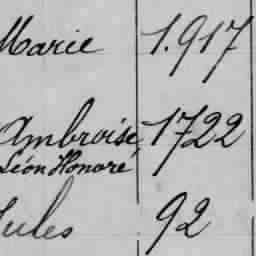 Marie 1.917
Ambroise, 1722
Léon Honoré
Jules 92